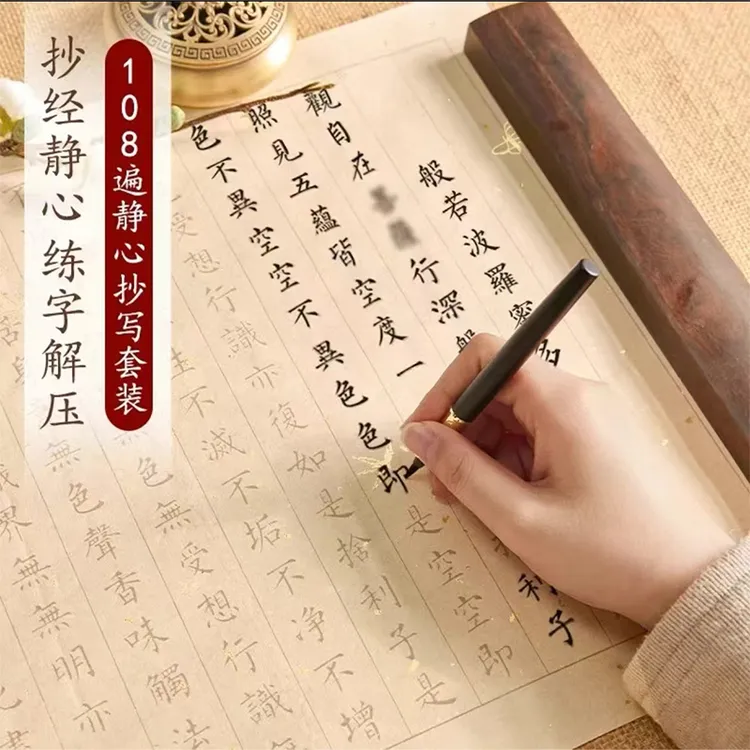 抄经静心练字解压
108遍静心抄写套装
般若波羅蜜多
觀自在行深般
照見五蘊皆空度一利子
色不異空空不異色色即是空空即
受想行識亦復如是捨利子是
不滅不垢不净不增
色無受想行識
無色聲香味觸法
界無無明亦